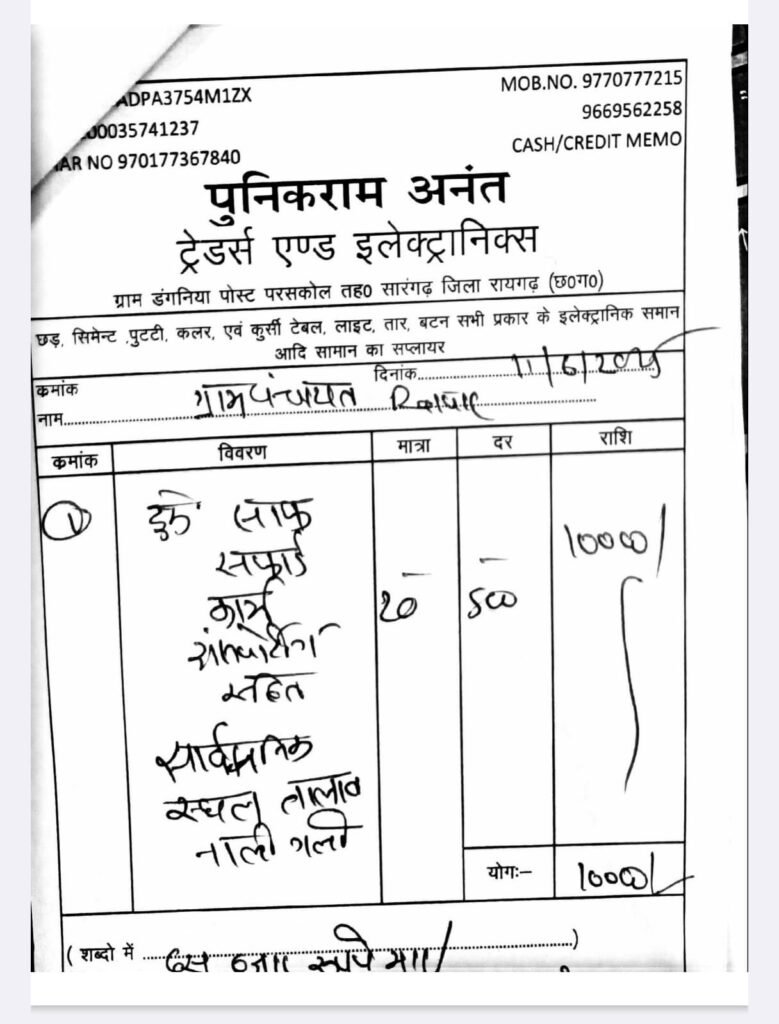 ADPA3754M1ZX
MOB.NO. 9770777215
00035741237
9669562258
AR NO 970177367840
CASH/CREDIT MEMO
पुनिकराम अनंत
ट्रेडर्स एण्ड इलेक्ट्रानिक्स
ग्राम डंगनिया पोस्ट परसकोल तह0 सारंगढ़ जिला रायगढ़ (छ0ग0)
छड़, सिमेन्ट ,पुटटी, कलर, एवं कुर्सी टेबल, लाइट, तार, बटन सभी प्रकार के इलेक्ट्रानिक समान
आदि सामान का सप्लायर
क्रमांक
दिनांक 11/6/2025
नाम ग्राम पंचायत
क्रमांक विवरण मात्रा दर राशि
① साफ 10000/
सफाई
कार्य 20 500
सहित
सार्वजनिक
स्थल तालाब
नाली गली
योगः- 10000/
( शब्दो में रूपये )